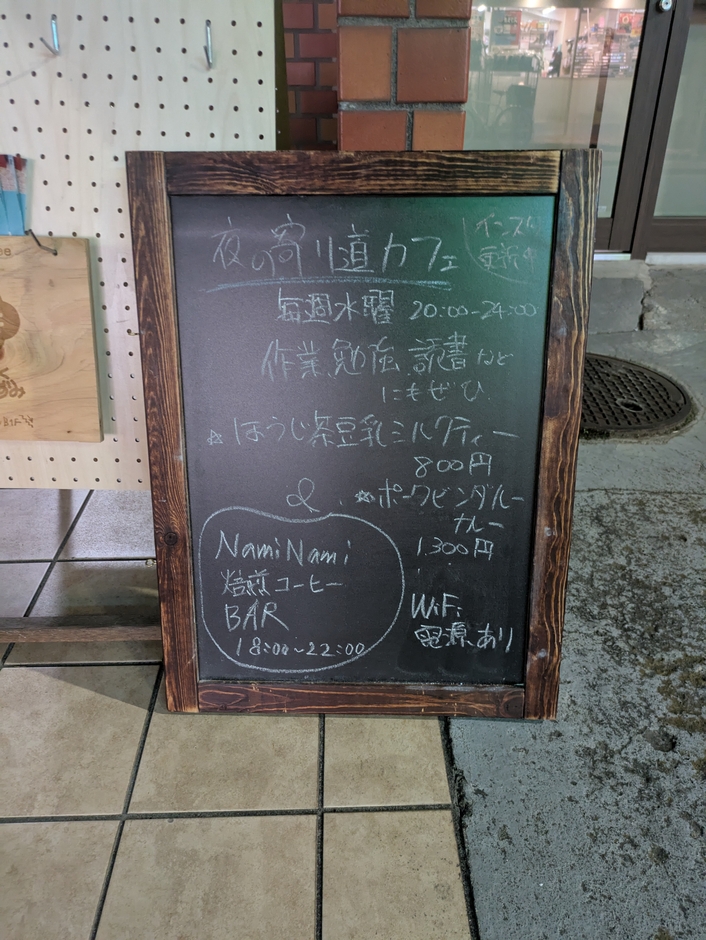 夜の寄り道カフェ
インスタ
更新中
毎週水曜 20:00-24:00
作業、勉強、読書など
にもぜひ
☆ほうじ茶豆乳ミルクティー
800円
& ☆ポークビンダルー
カレー
1.300円
NamiNami
焙煎コーヒー
BAR
18:00~22:00
WiFi
電源あり